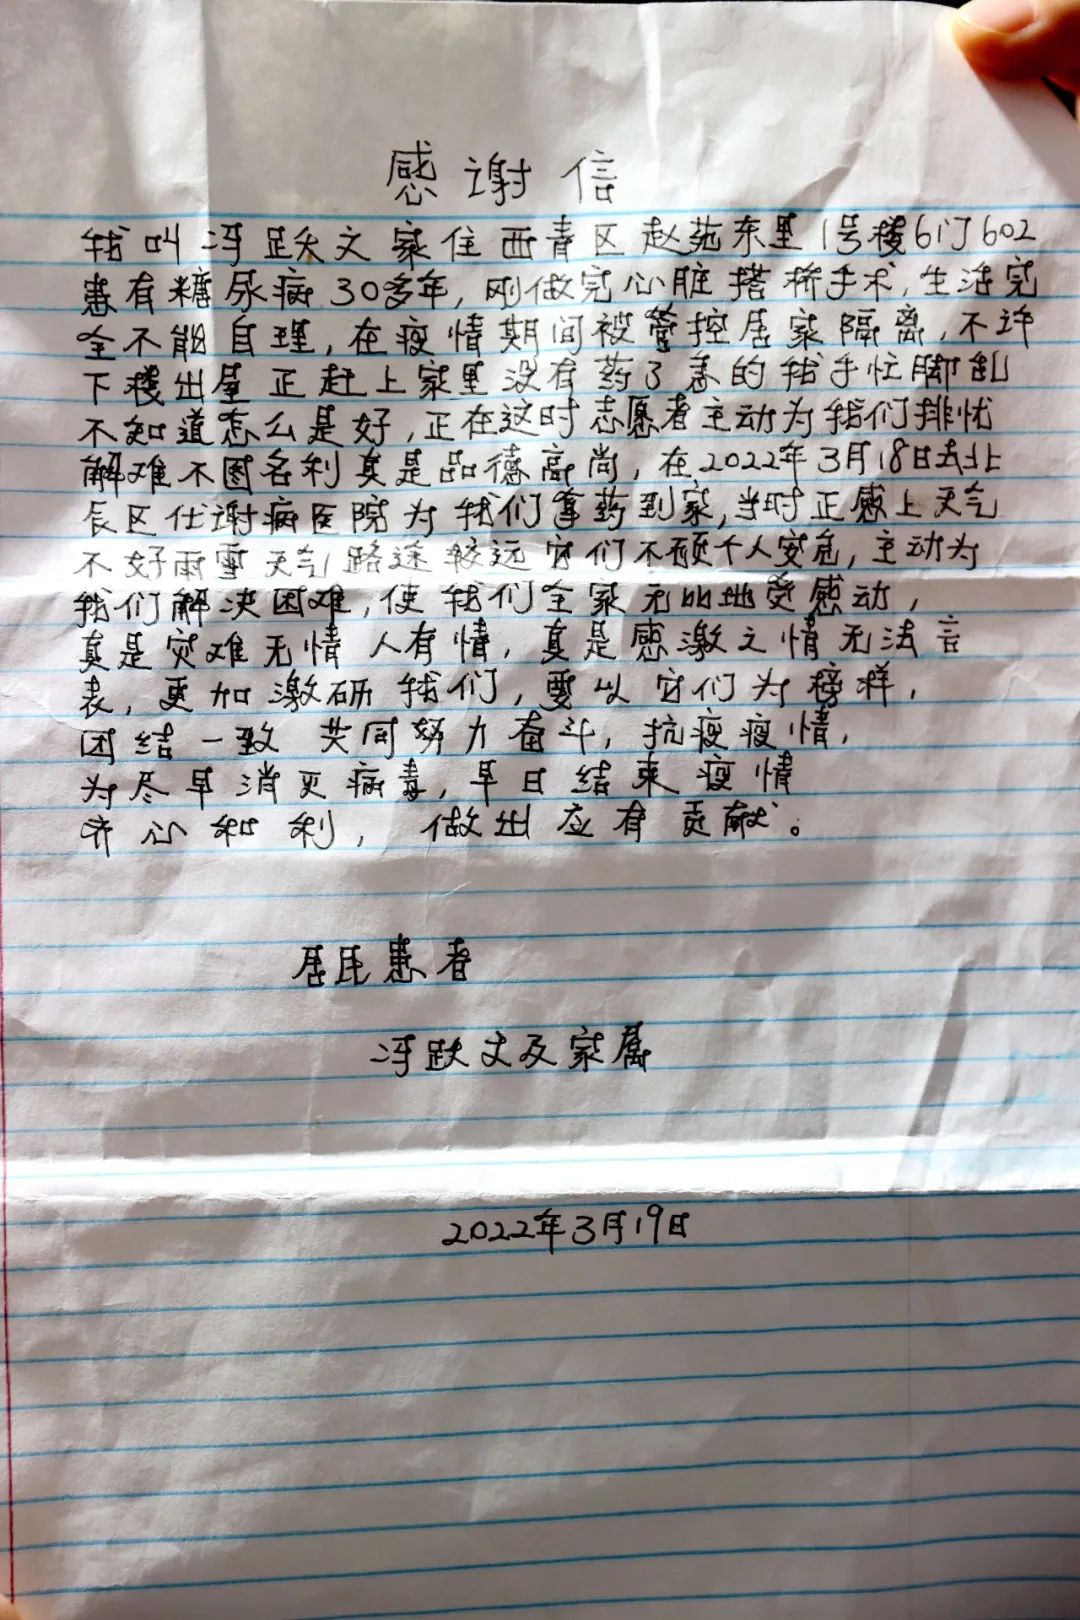 感谢信
我叫冯跃文家住西青区赵苑东里1号楼6门602
患有糖尿病30多年,刚做完心脏搭桥手术,生活完
全不能自理,在疫情期间被管控居家隔离,不许
下楼出屋正赶上家里没有药了急的我手忙脚乱
不知道怎么是好,正在这时志愿者主动为我们排忧
解难不图名利真是品德高尚,在2022年3月18日去北
辰区代谢病医院为我们拿药到家,当时正感上天气
不好雨雪天气路途较远它们不顾个人安危,主动为
我们解决困难,使我们全家无比地受感动,
真是灾难无情人有情,真是感激之情无法言
表,更加激研我们,要以它们为榜样,
团结一致 共同努力奋斗,抗疫疫情,
为尽早消灭病毒,早日结束疫情
齐心和利, 做出应有贡献。
居民患者
冯跃文及家属
2022年3月19日